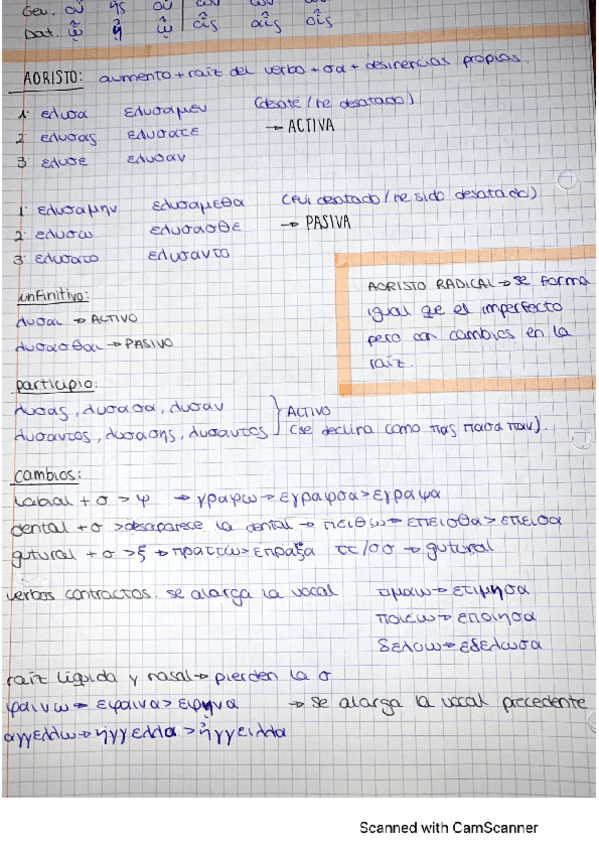 Gen. οὗ ἧς οὗ
Dat. ᾧ ᾗ ᾧ οἷς αἷς οἷς
AORISTO: aumento + raíz del verbo + σα + desinencias propias.
1ª ελυσα ελυσαμεν (desaté / he desatado)
2ª ελυσας ελυσατε → ACTIVA
3ª ελυσε ελυσαν
1ª ελυσαμην ελυσαμεθα (fui desatado / he sido desatado)
2ª ελυσω ελυσασθε → PASIVA
3ª ελυσατο ελυσαντο
infinitivo:
λυσαι → ACTIVO
λυσασθαι → PASIVO
AORISTO RADICAL → se forma
igual que el imperfecto
pero con cambios en la
raíz.
participio:
λυσας, λυσασα, λυσαν ACTIVO
λυσαντος, λυσασης, λυσαντος (se declina como πας πασα παν).
cambios:
labial + σ > ψ → γραφω → εγραφσα > εγραψα
dental + σ > desaparese la dental → πειθω → επειθσα > επεισα
gutural + σ > ξ → πραττω > επραξα ττ/σσ → gutural
verbos contractos: se alarga la vocal τιμαω → ετιμησα
ποιεω → εποιησα
δελοω → εδελωσα
raíz líquida y nasal → pierden la σ
φαινω → εφαινα > εφηνα → se alarga la vocal precedente
αγγελλω → ήγγελλα > ήγγειλλα
Scanned with CamScanner